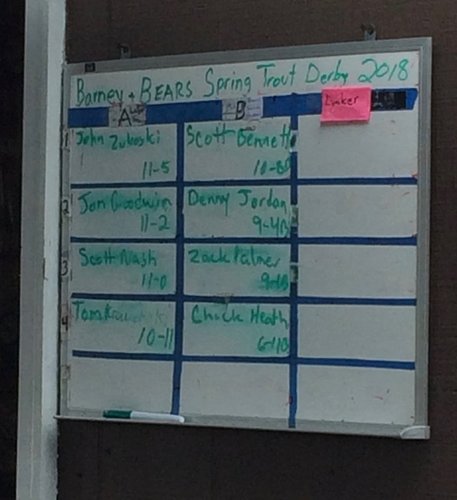 Barney + BEARS Spring Trout Derby 2018
A B Lunker
1 John Zuboski Scott Bennett
11-5 10-8
2 Jom Goodwin Denny Jordan
11-2 9-4
3 Scott Nash Zack Palmer
11-0
4 Tom Chuck Heath
10-11